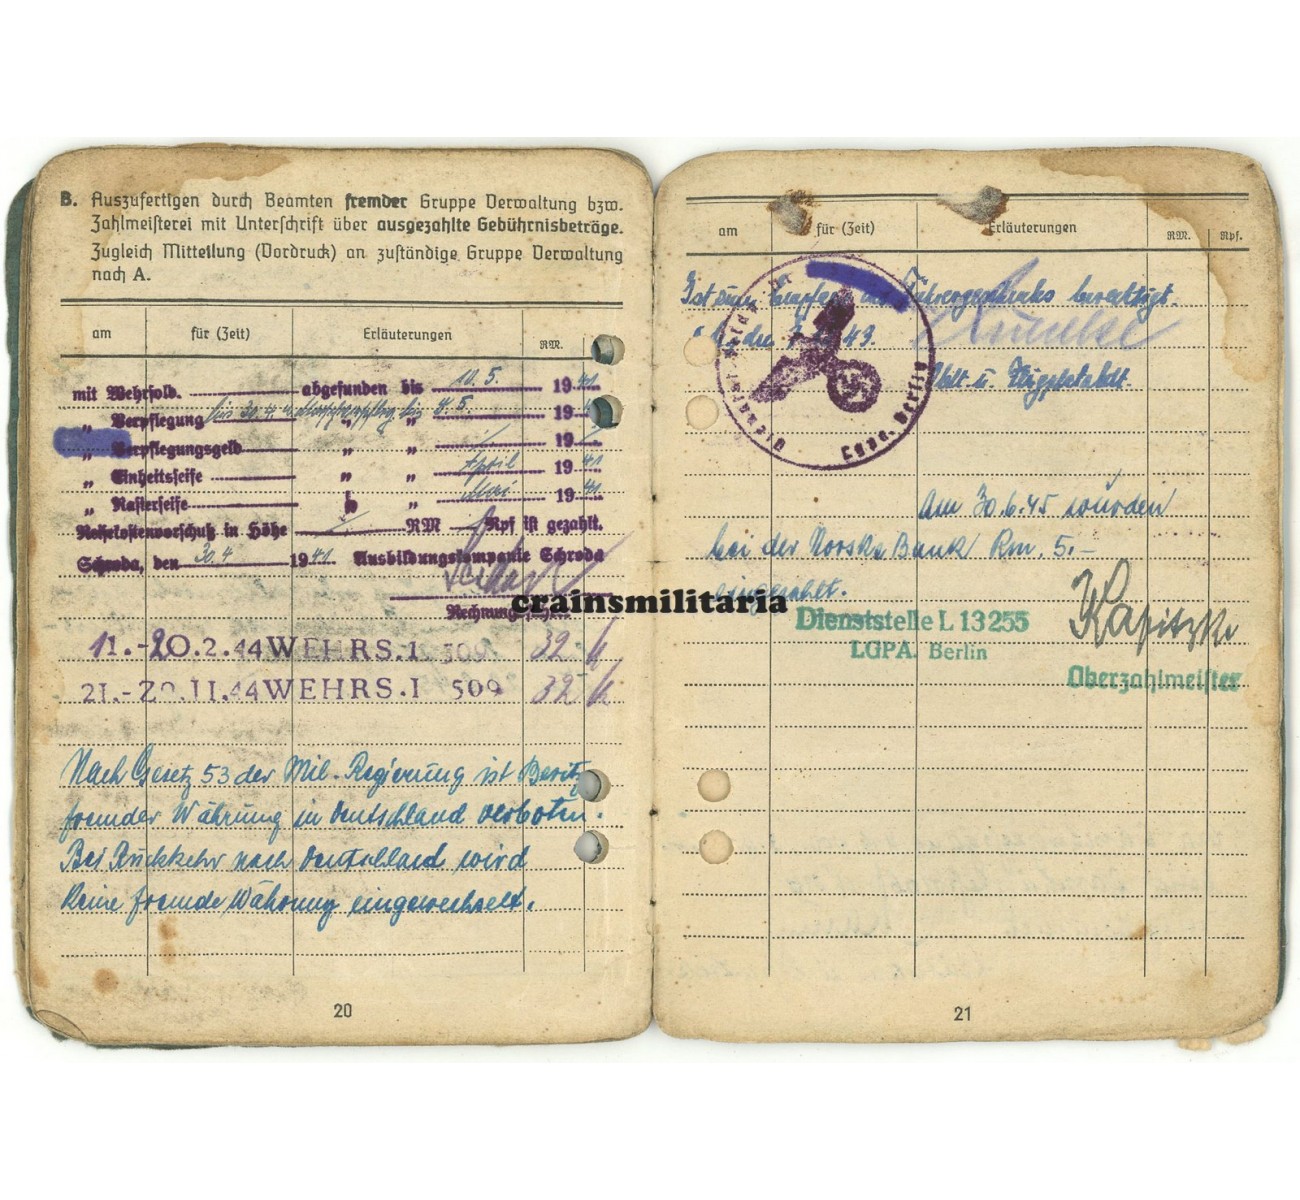 B. Auszufertigen durch Beamten fremder Gruppe Verwaltung bzw.
Zahlmeisterei mit Unterschrift über ausgezahlte Gebührnisbeträge.
Zugleich Mitteilung (Vordruck) an zuständige Gruppe Verwaltung
nach A.
am für (Zeit) Erläuterungen RM.
mit Wehrsold abgefunden bis 10.5. 1941
„ Verpflegung bis 30.4. u. bis „ „ 8.5. 19
„ Verpflegungsgeld „ „ 19
„ Einheitsseife „ „ April 1941
„ Rasierseife „ „ Mai 1941
Reisekostenvorschuß in Höhe RM Rpf ist gezahlt.
Schroda, den 30.4 1941. Ausbildungskompanie Schroda
Rechnungsführer
11.-20.2.44 WEHRS.I 509 32.-
21.-20.II.44 WEHRS.I 509 32.-
Nach Gesetz 53 der Mil. Regierung ist Besitz
fremder Währung in Deutschland verboten.
Bei Rückkehr nach Deutschland wird
keine fremde Währung eingewechselt.
20
am für (Zeit) Erläuterungen RM. Rpf.
Ist zum Empfang des Führergeschenks berechtigt.
den 43.
Lgpa. Berlin
Am 30.6.45 wurden
bei der Norske Bank Rm. 5.–
eingezahlt.
Dienststelle L 13255
LGPA. Berlin
Kapitzke
Oberzahlmeister
21
crainsmilitaria